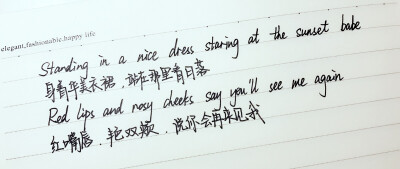 elegant,fashionable,happy life
Standing in a nice dress staring at the sunset babe
身着华美衣裙，站在那里看日落
Red lips and rosy cheeks say you'll see me again
红嘴唇 艳双颊，说你会再来见我